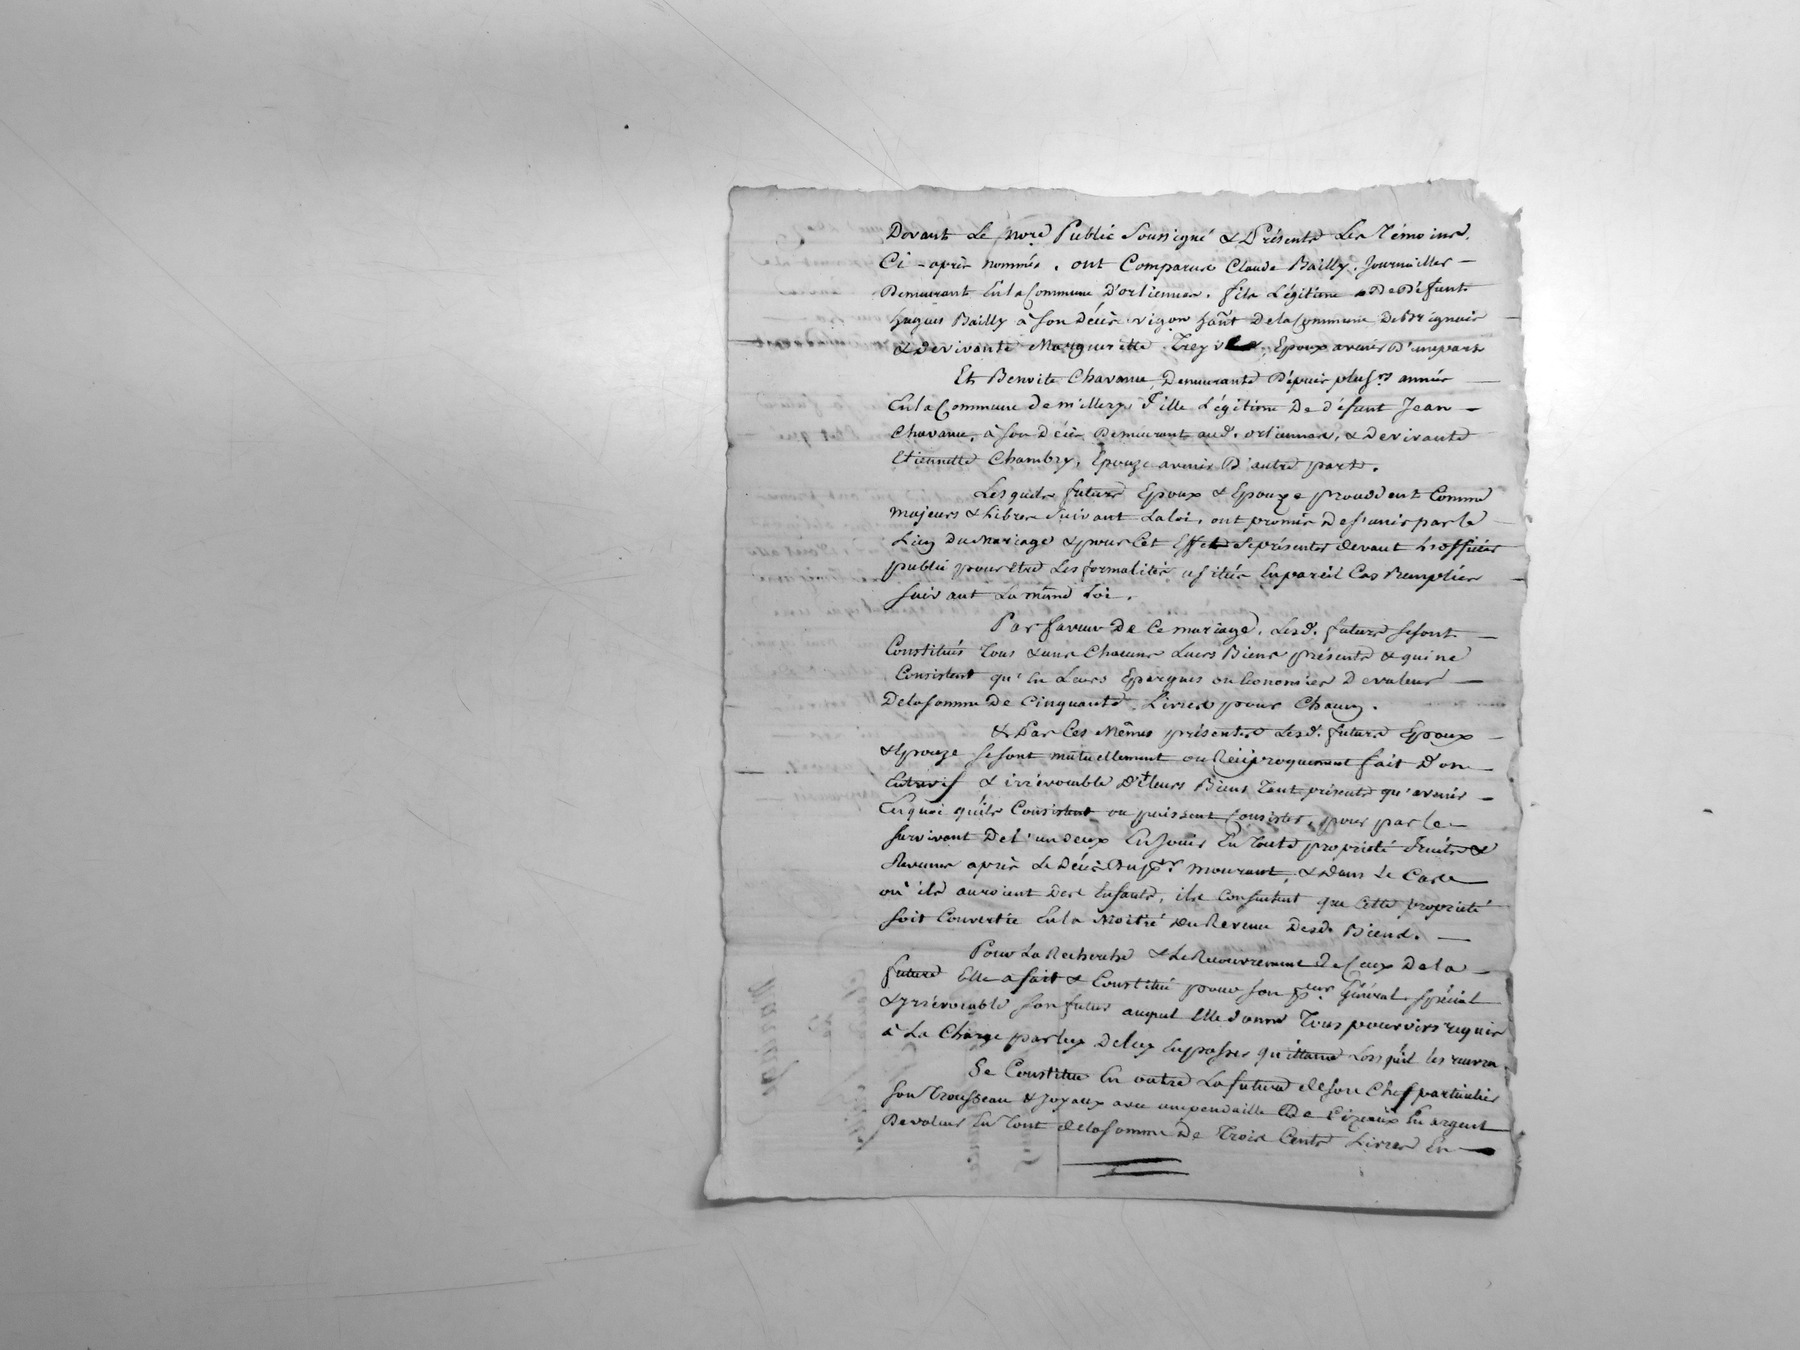 Devant Le nore Public Soussigné & Présents Les Témoins.
Ci-après nommés. ont Comparus Claude Bailly. Journallier
Demeurant En la Commune D'orliennas. fils Légitime De Défunt
hugues Bailly à son Décès vigneron hañt De la Commune De brignais
& De vivante Margueritte Époux avenir D'une part
Et Benoite Chavanne, Demeurante Depuis plusrs années
En la Commune de millery, fille Légitime De défunt Jean
Chavanne, à son Décès Demeurant aud. orliennas, & De vivante
Etiennette Chambry, Épouze avenir D'autre part.
Lesquels futurs Époux & Épouze procédent Comme
Majeurs & Libres Suivant La loi, ont promis De s'unir par le
Lien Du Mariage & pour Cet Effet se présenter devant L'officier
public pour être Les formalités usitées En pareil Cas Remplies
Suivant La même Loi.
Par faveur De Ce mariage. Lesd. futurs se sont
Constitués Tous & une Chacune Leurs Biens présents & qui ne
Consistent qu'En Leurs Epargnes ou Economies De valeur
De la somme De Cinquante Livres pour Chacun.
& Par Ces Mêmes présentes Lesd. futurs Époux
& Épouze se sont mutuellement ou Réciproquement fait D'on
Entrevif & irrévocable D'& leurs Biens Tant présents qu'avenir
En quoi qu'ils Consistent ou puissent Consister, pour par le
survivant De l'un deux En Jouir En Toute propriété fruits &
Revenus après Le Décès Du pr. mourant, & dans Le Cas
où ils auroient Des Enfants, ils Consentent que Cette propriété
soit Convertie En la Moitié Du Revenu Desd. Biens.
Pour La Recherche & Le Recouvrement De Ceux De la
future Elle a fait & Constitué pour son pcur Général Spécial
& Irrévocable son futur auquel Elle donne Tous pouvoirs requis
à La Charge par luy De luy En passer quittance Lorsqu'il les recevra.
Se Constitue En outre La future de son Chef particulier
son Trousseau & Joyaux avec une pendaille De Cizeaux En argent
De valeur En Tout de la somme De Trois Cents Livres En